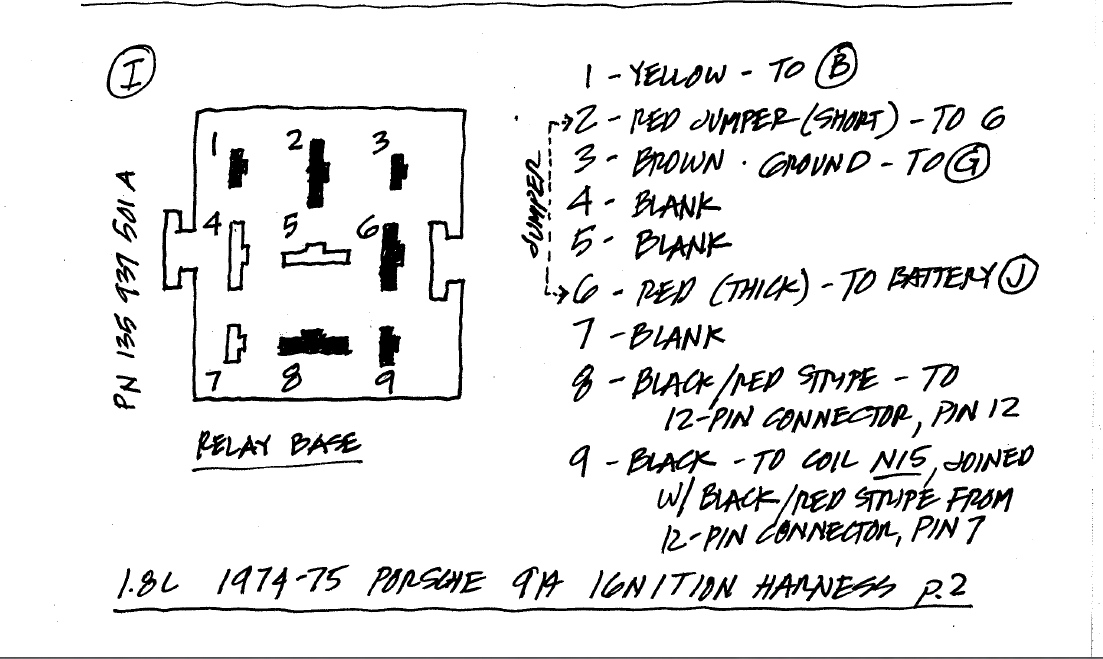 I
1 2 3
4 5 6
7 8 9
PN 135 937 501 A
RELAY BASE
JUMPER
1 - YELLOW - TO B
2 - RED JUMPER (SHORT) - TO 6
3 - BROWN · GROUND - TO G
4 - BLANK
5 - BLANK
6 - RED (THICK) - TO BATTERY J
7 - BLANK
8 - BLACK/RED STRIPE - TO
12-PIN CONNECTOR, PIN 12
9 - BLACK - TO COIL N15, JOINED
W/ BLACK/RED STRIPE FROM
12-PIN CONNECTOR, PIN 7
1.8L 1974-75 PORSCHE 914 IGNITION HARNESS p.2